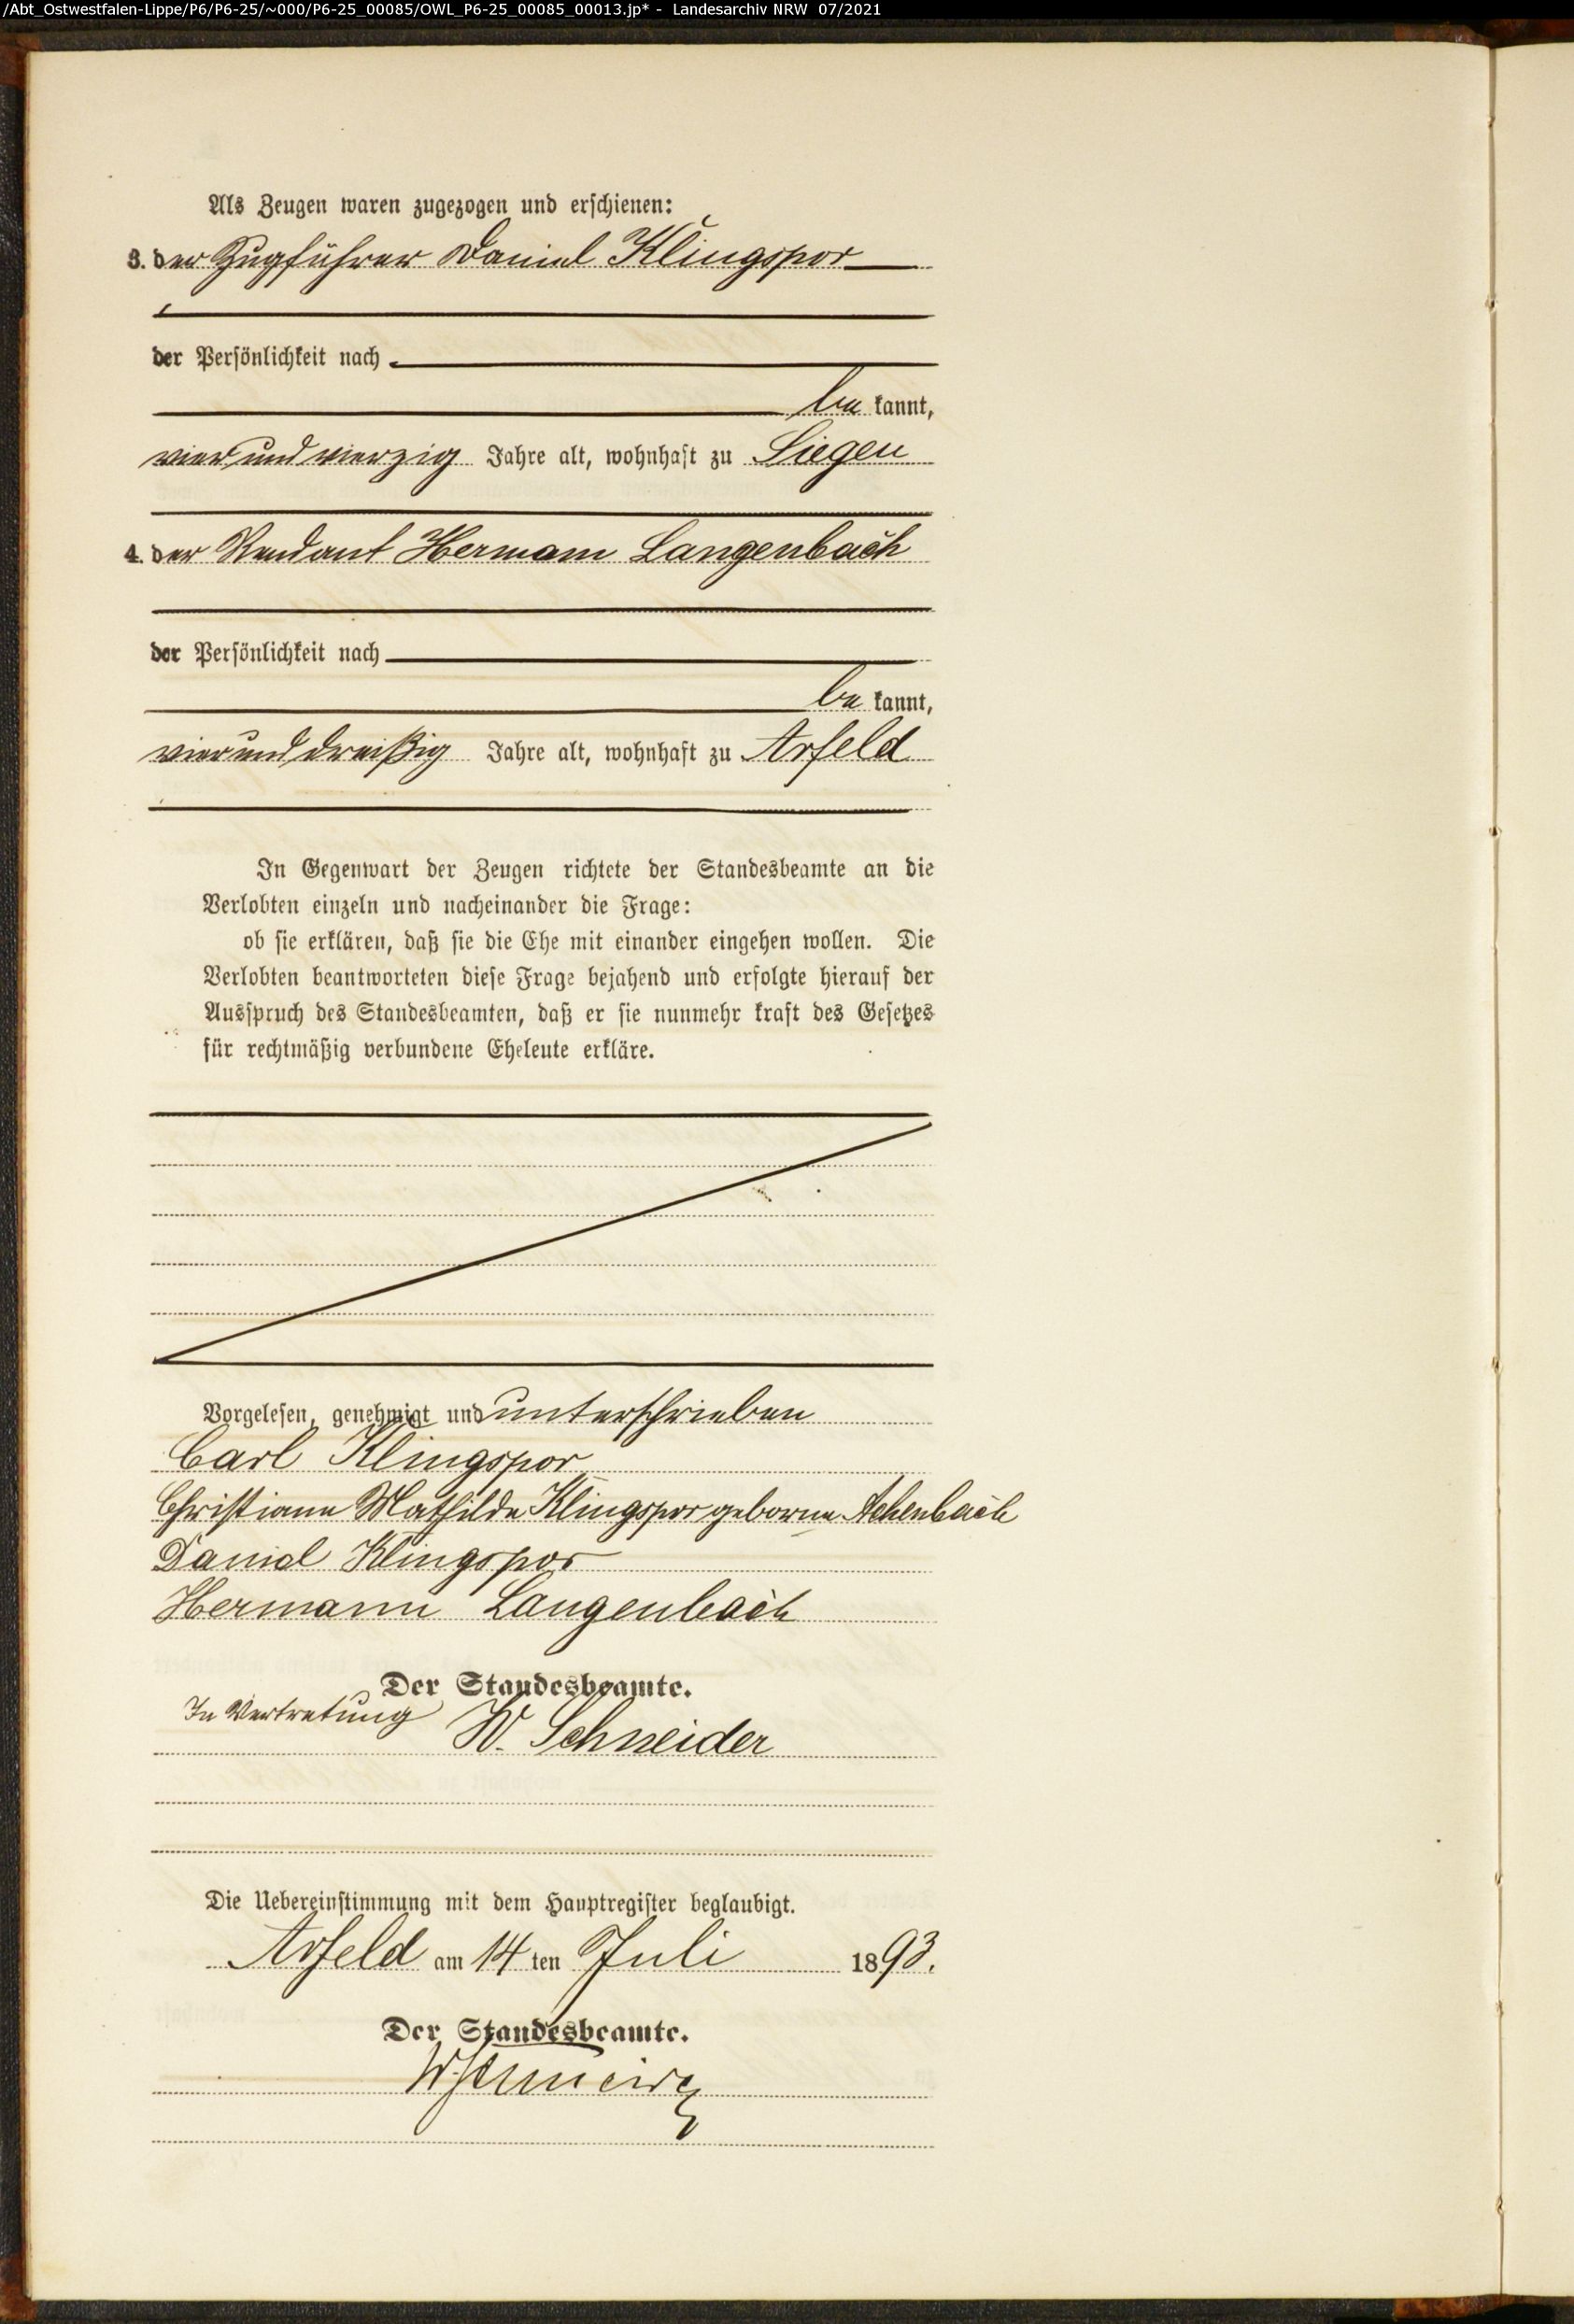 /Abt_Ostwestfalen-Lippe/P6/P6-25/~000/P6-25_00085/OWL_P6-25_00085_00013.jp* - Landesarchiv NRW 07/2021
Als Zeugen waren zugezogen und erschienen:
3. der Zugführer Daniel Klingspor
der Persönlichkeit nach
be kannt,
vierundvierzig Jahre alt, wohnhaft zu Siegen
4. der Rendant Hermann Langenbach
der Persönlichkeit nach
be kannt,
vierunddreißig Jahre alt, wohnhaft zu Arfeld
In Gegenwart der Zeugen richtete der Standesbeamte an die
Verlobten einzeln und nacheinander die Frage:
ob sie erklären, daß sie die Ehe mit einander eingehen wollen. Die
Verlobten beantworteten diese Frage bejahend und erfolgte hierauf der
Ausspruch des Standesbeamten, daß er sie nunmehr kraft des Gesetzes
für rechtmäßig verbundene Eheleute erkläre.
Vorgelesen, genehmigt und unterschrieben
Carl Klingspor
Christiane Mathilde Klingspor geborne Achenbach
Daniel Klingspor
Hermann Langenbach
Der Standesbeamte.
In Vertretung W. Schneider
Die Uebereinstimmung mit dem Hauptregister beglaubigt.
Arfeld am 14 ten Juli 1893.
Der Standesbeamte.
W. Schneider